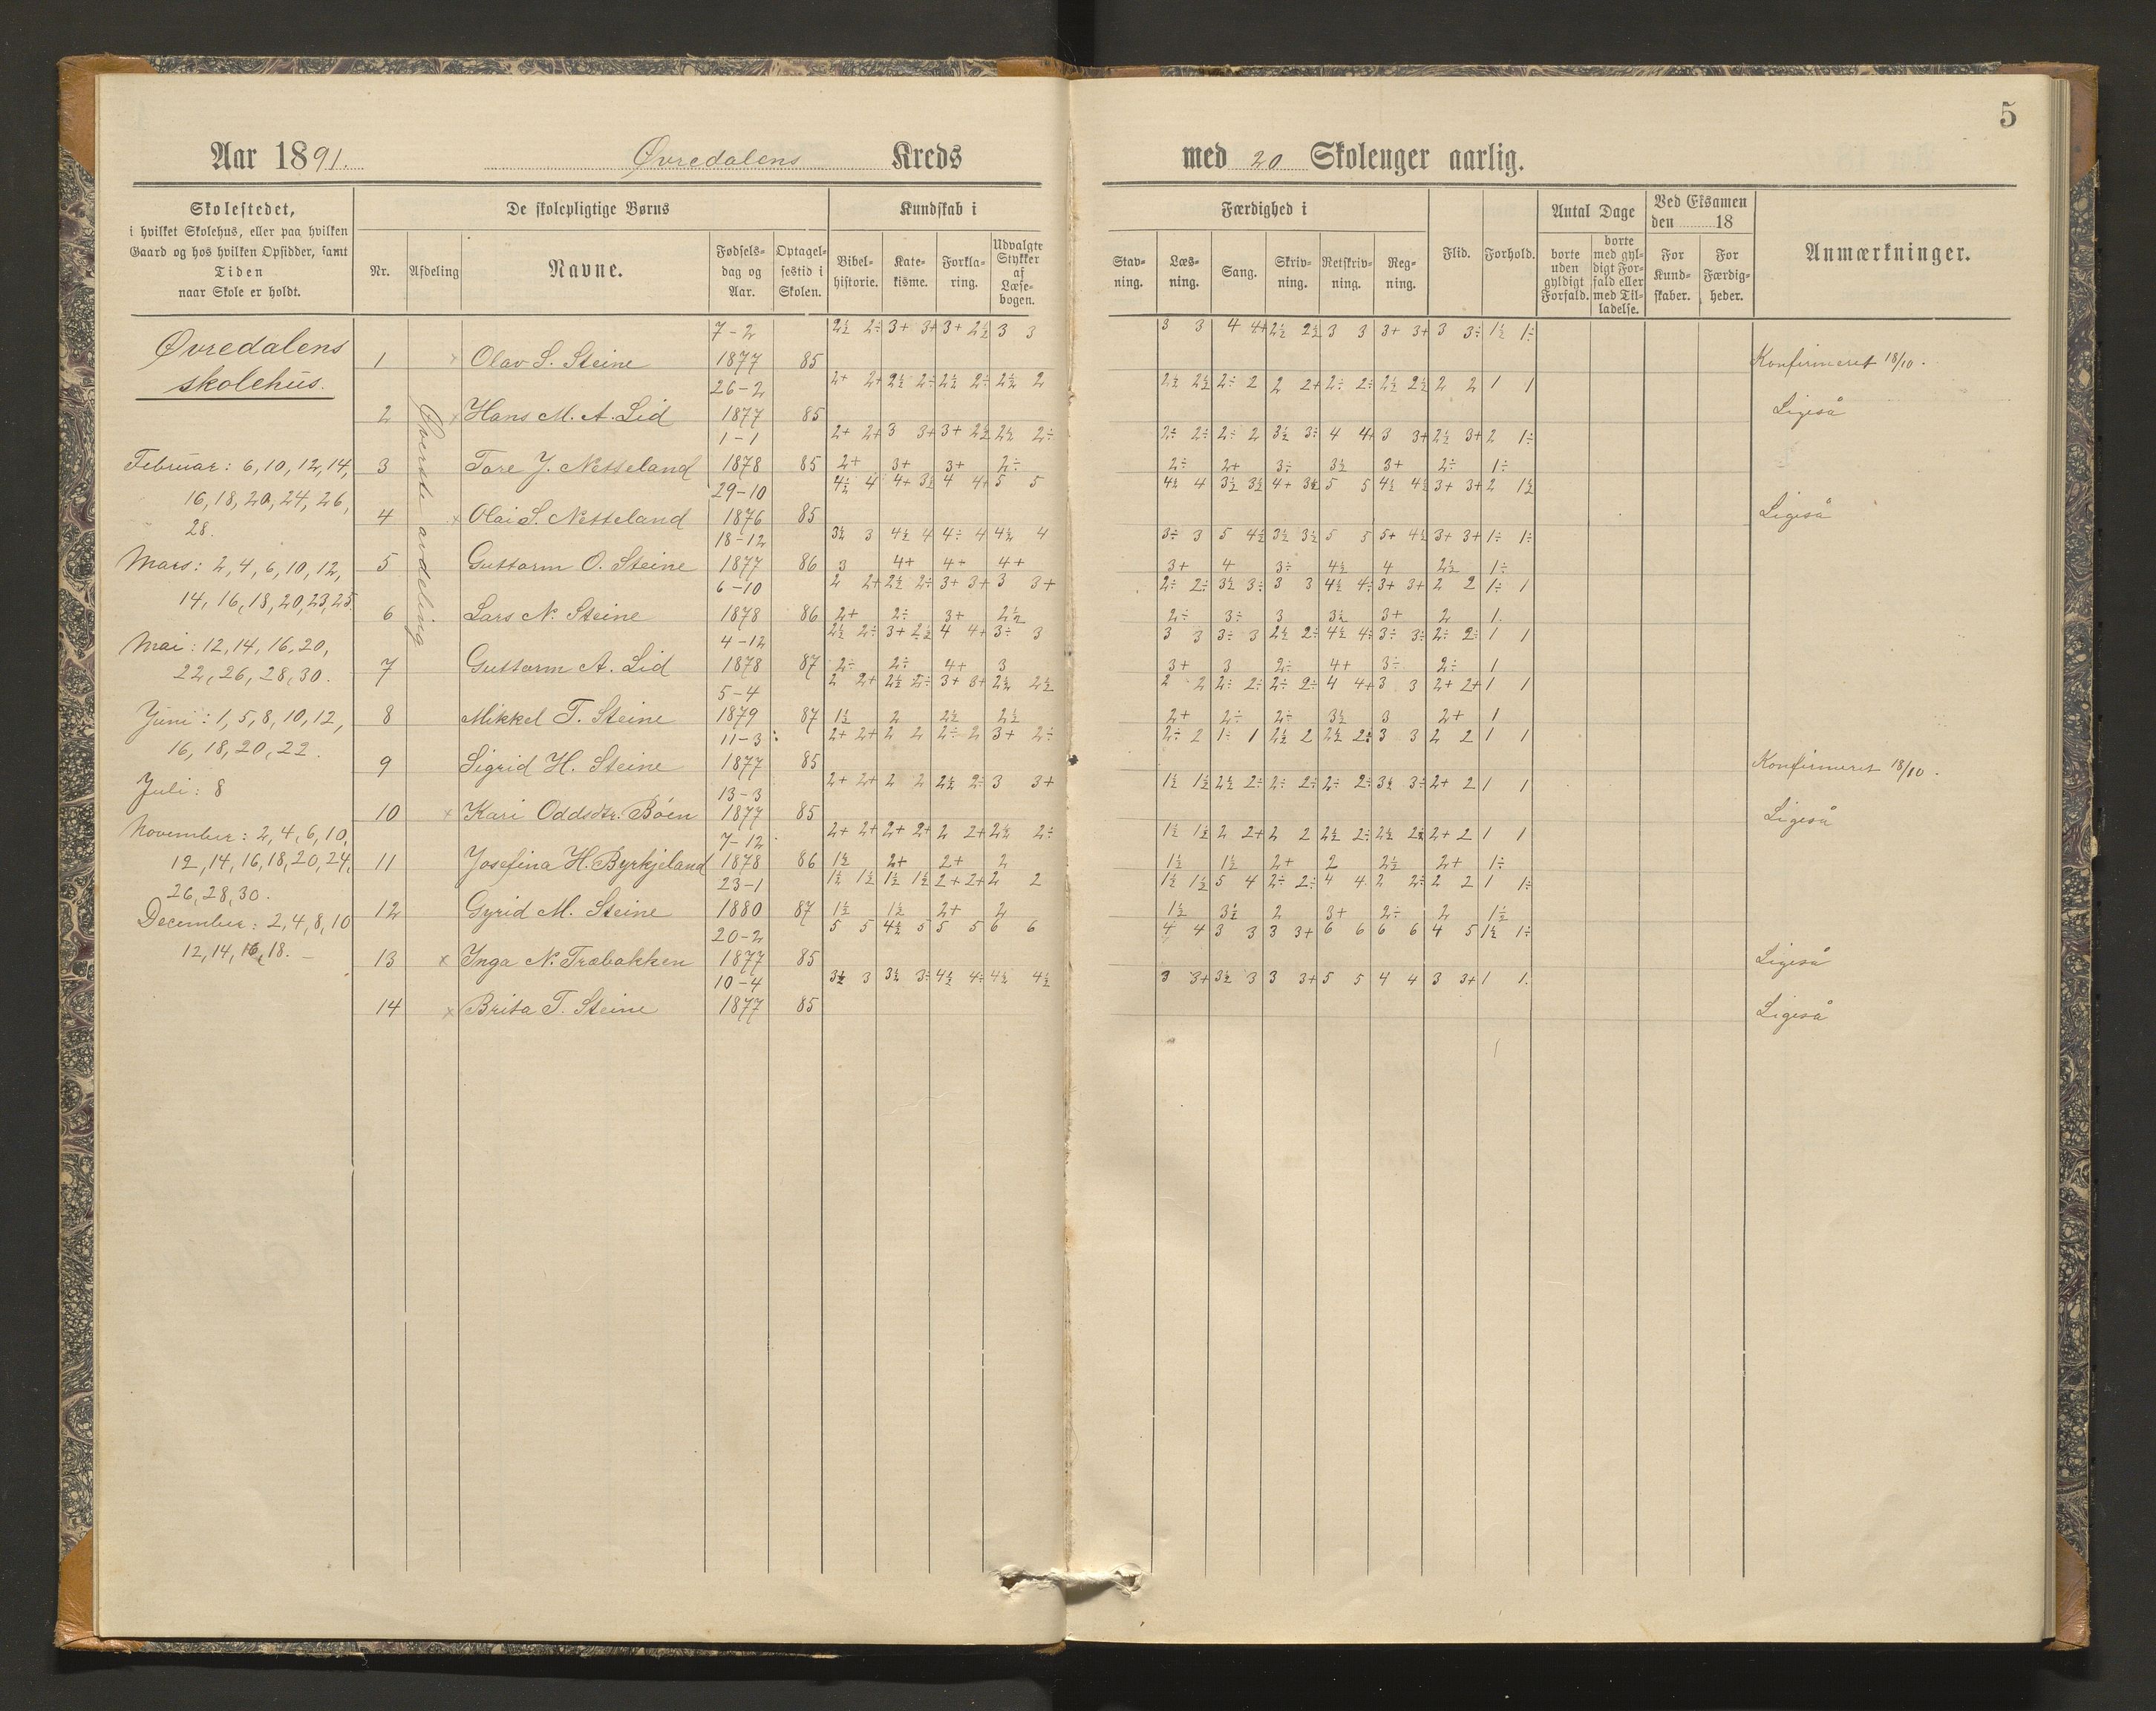 5
Aar 1891. Øvredalens Kreds med 20 Skoleuger aarlig.
Skolestedet,
i hvilket Skolehus, eller paa hvilken
Gaard og hos hvilken Opsidder, samt
Tiden
naar Skole er holdt.
De skolepligtige Børns
Nr. Afdeling Navne. Fødselsdag og Aar. Optagelsestid i Skolen.
Kundskab i
Bibelhistorie. Katekisme. Forklaring. Udvalgte Stykker af Læsebogen.
Færdighed i
Stavning. Læsning. Sang. Skrivning. Retskrivning. Regning.
Flid. Forhold.
Antal Dage
borte uden gyldigt Forfald. borte med gyldigt Forfald eller med Tilladelse.
Ved Eksamen den 18
For Kundskaber. For Færdigheder.
Anmærkninger.
Øvredalens
skolehus.
Februar: 6, 10, 12, 14,
16, 18, 20, 24, 26,
28.
Mars: 2, 4, 6, 10, 12,
14, 16, 18, 20, 23, 25.
Mai: 12, 14, 16, 20,
22, 26, 28, 30.
Juni: 1, 5, 8, 10, 12,
16, 18, 20, 22.
Juli: 8
November: 2, 4, 6, 10,
12, 14, 16, 18, 20, 24,
26, 28, 30.
December: 2, 4, 8, 10
12, 14, 16, 18. –
Øverste avdeling
7-2 2½ 2÷ 3+ 3+ 3+ 2½ 3 3 3 3 4 4+ 2½ 2½ 3 3 3+ 3+ 3 3÷ 1½ 1÷
1 x Olav S. Steine 1877 85 Konfirmeret 18/10.
26-2 2+ 2+ 2½ 2÷ 2½ 2÷ 2½ 2 2½ 2½ 2÷ 2 2 2+ 2÷ 2÷ 2½ 2½ 2 2 1 1
2 x Hans M. A. Lid 1877 85 Ligeså
1-1 2+ 2+ 3 3+ 3+ 2½ 2½ 2÷ 2÷ 2÷ 2÷ 2 3½ 3÷ 4 4+ 3 3+ 2½ 3+ 2 1÷
3 Tore J. Netteland 1878 85 2+ 3+ 3+ 2÷ 2÷ 2+ 3÷ 3½ 3+ 2÷ 1÷
29-10 4½ 4 4+ 3½ 4 4+ 5 5 4½ 4 3½ 3½ 4+ 3½ 5 5 4½ 4½ 3+ 3+ 2 1½
4 x Olai S. Netteland 1876 85 Ligeså
18-12 3½ 3 4½ 4 4÷ 4 4½ 4 3÷ 3 5 4½ 3½ 3½ 5 5 5+ 4½ 3+ 3+ 1÷ 1÷
5 Guttorm O. Steine 1877 86 3 4+ 4+ 4+ 3+ 4 3÷ 4½ 4 2½ 1÷
6-10 2 2+ 2½ 2÷ 3+ 3+ 3 3+ 2÷ 2÷ 3½ 3÷ 3 3 4½ 4÷ 3+ 3+ 2 2 1÷ 1
6 Lars N. Steine 1878 86 2+ 2÷ 3+ 2½ 2÷ 3÷ 3 3½ 3+ 2 1.
4-12 2½ 2÷ 3+ 2½ 4 4+ 3÷ 3 3 3 3÷ 3 2½ 2÷ 4½ 4÷ 3÷ 3÷ 2÷ 2÷ 1 1
7 Guttorm A. Lid 1878 87 2÷ 2÷ 4+ 3 3+ 3 2÷ 4+ 3÷ 2÷ 1
5-4 2 2+ 2½ 2÷ 3+ 3+ 2½ 2½ 2 2 2÷ 2÷ 2÷ 2÷ 4 4+ 3 3 2+ 2+ 1 1
8 Mikkel T. Steine 1879 87 1½ 2 2½ 2½ 2+ 2÷ 2÷ 3½ 3 2+ 1
11-3 2+ 2+ 2 2 2÷ 2 3+ 2÷ 2÷ 2 1÷ 1 2½ 2 2½ 2÷ 3 3 2 2 1 1
9 Sigrid H. Steine 1877 85 Konfirmeret 18/10.
13-3 2+ 2+ 2 2 2½ 2÷ 3 3+ 1½ 1½ 2½ 2÷ 2÷ 2÷ 2÷ 2÷ 3½ 3÷ 2+ 2 1 1
10 x Kari Oddsdtr. Böen 1877 85 Ligeså
7-12 2+ 2+ 2+ 2+ 2 2+ 2½ 2÷ 1½ 1½ 2 2+ 2 2 2½ 2÷ 2½ 2½ 2+ 2 1 1
11 Josefina H. Byrkjeland 1878 86 1½ 2+ 2+ 2 1½ 1½ 2+ 2 2½ 2+ 1÷
23-1 1½ 1½ 1½ 1½ 2+ 2+ 2 2 1½ 1½ 5 4 2÷ 2÷ 4 4 2 2÷ 2 2 1 1÷
12 Gyrid M. Steine 1880 87 1½ 1½ 2+ 2 1½ 3½ 2 3+ 2÷ 2 1½
20-2 5 5 4½ 5 5 5 6 6 4 4 3 3 3 3+ 6 6 6 6 4 5 1½ 1÷
13 x Inga N. Træbakken 1877 85 Ligeså
10-4 3½ 3 3½ 3÷ 4½ 4÷ 4½ 4½ 3 3+ 3½ 3 3 3+ 5 5 4 4 3 3+ 1 1.
14 x Brita T. Steine 1877 85 Ligeså